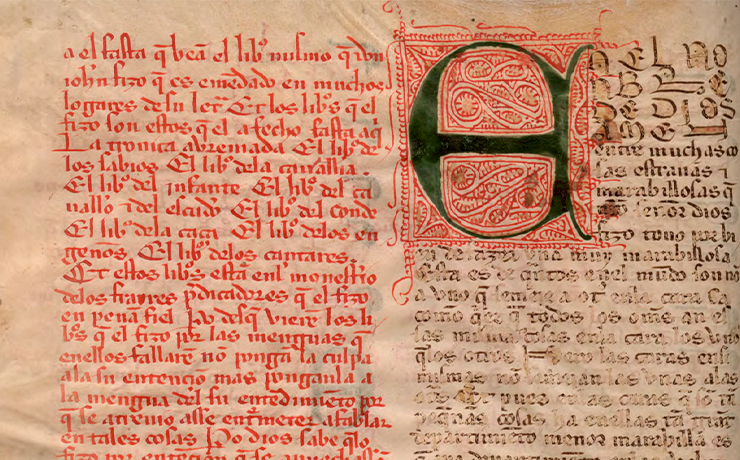 a el fasta q̃ vea el libº mismo q̃ don
iohn fizo q̃ es emẽdado en muchos
logares de su letª Et los libºs q̃ el
fizo son estos q̃ el a fecho fasta aq̃
La cronica abreuiada El libº de
los sabios. El libº dela caualleria.
El libº del infante El libº del ca
uallº ⁊ del escudº El libº del conde
El libº dela caça El libº delos en
geños. El libº delos cantares.
Et estos libºs estã enl monestº
delos frayres p̃dicadores q̃ el fizo
en peñafiel Pº desq̃ vierẽ los li
bºs q̃ el fizo por las menguas q̃
enellos fallarẽ nõ pongã la culpa
ala su entenciõ mas pongan la a
la mengua del su entẽdimiẽto por
q̃ se atreuio asse entᵉmeter a fablar
en tales cosas Pº dios sabe q̃lo
fizo por entenciõ q̃ se
EN EL NO
NBRE
DE DIOS
AMEN
entre muchas co
sas estrañas ⁊
marabillosas q̃
señor dios
fizo touo por bi
en de fazer vna muy marabillosa
Esta es de q̃ntos enel mũdo son nõ
a vno q̃ semeje a otº enla cara Ca
como q̃er q̃ todos los oms an es
sas mismas cosas enla cara los vnos
q̃los otros Pero las caras en si
mismas nõ semejan las vnas alas
Et pues en las caras q̃ sõ tã
pequeñas cosas ha enellas tã grãt
departimiento menor marabilla es